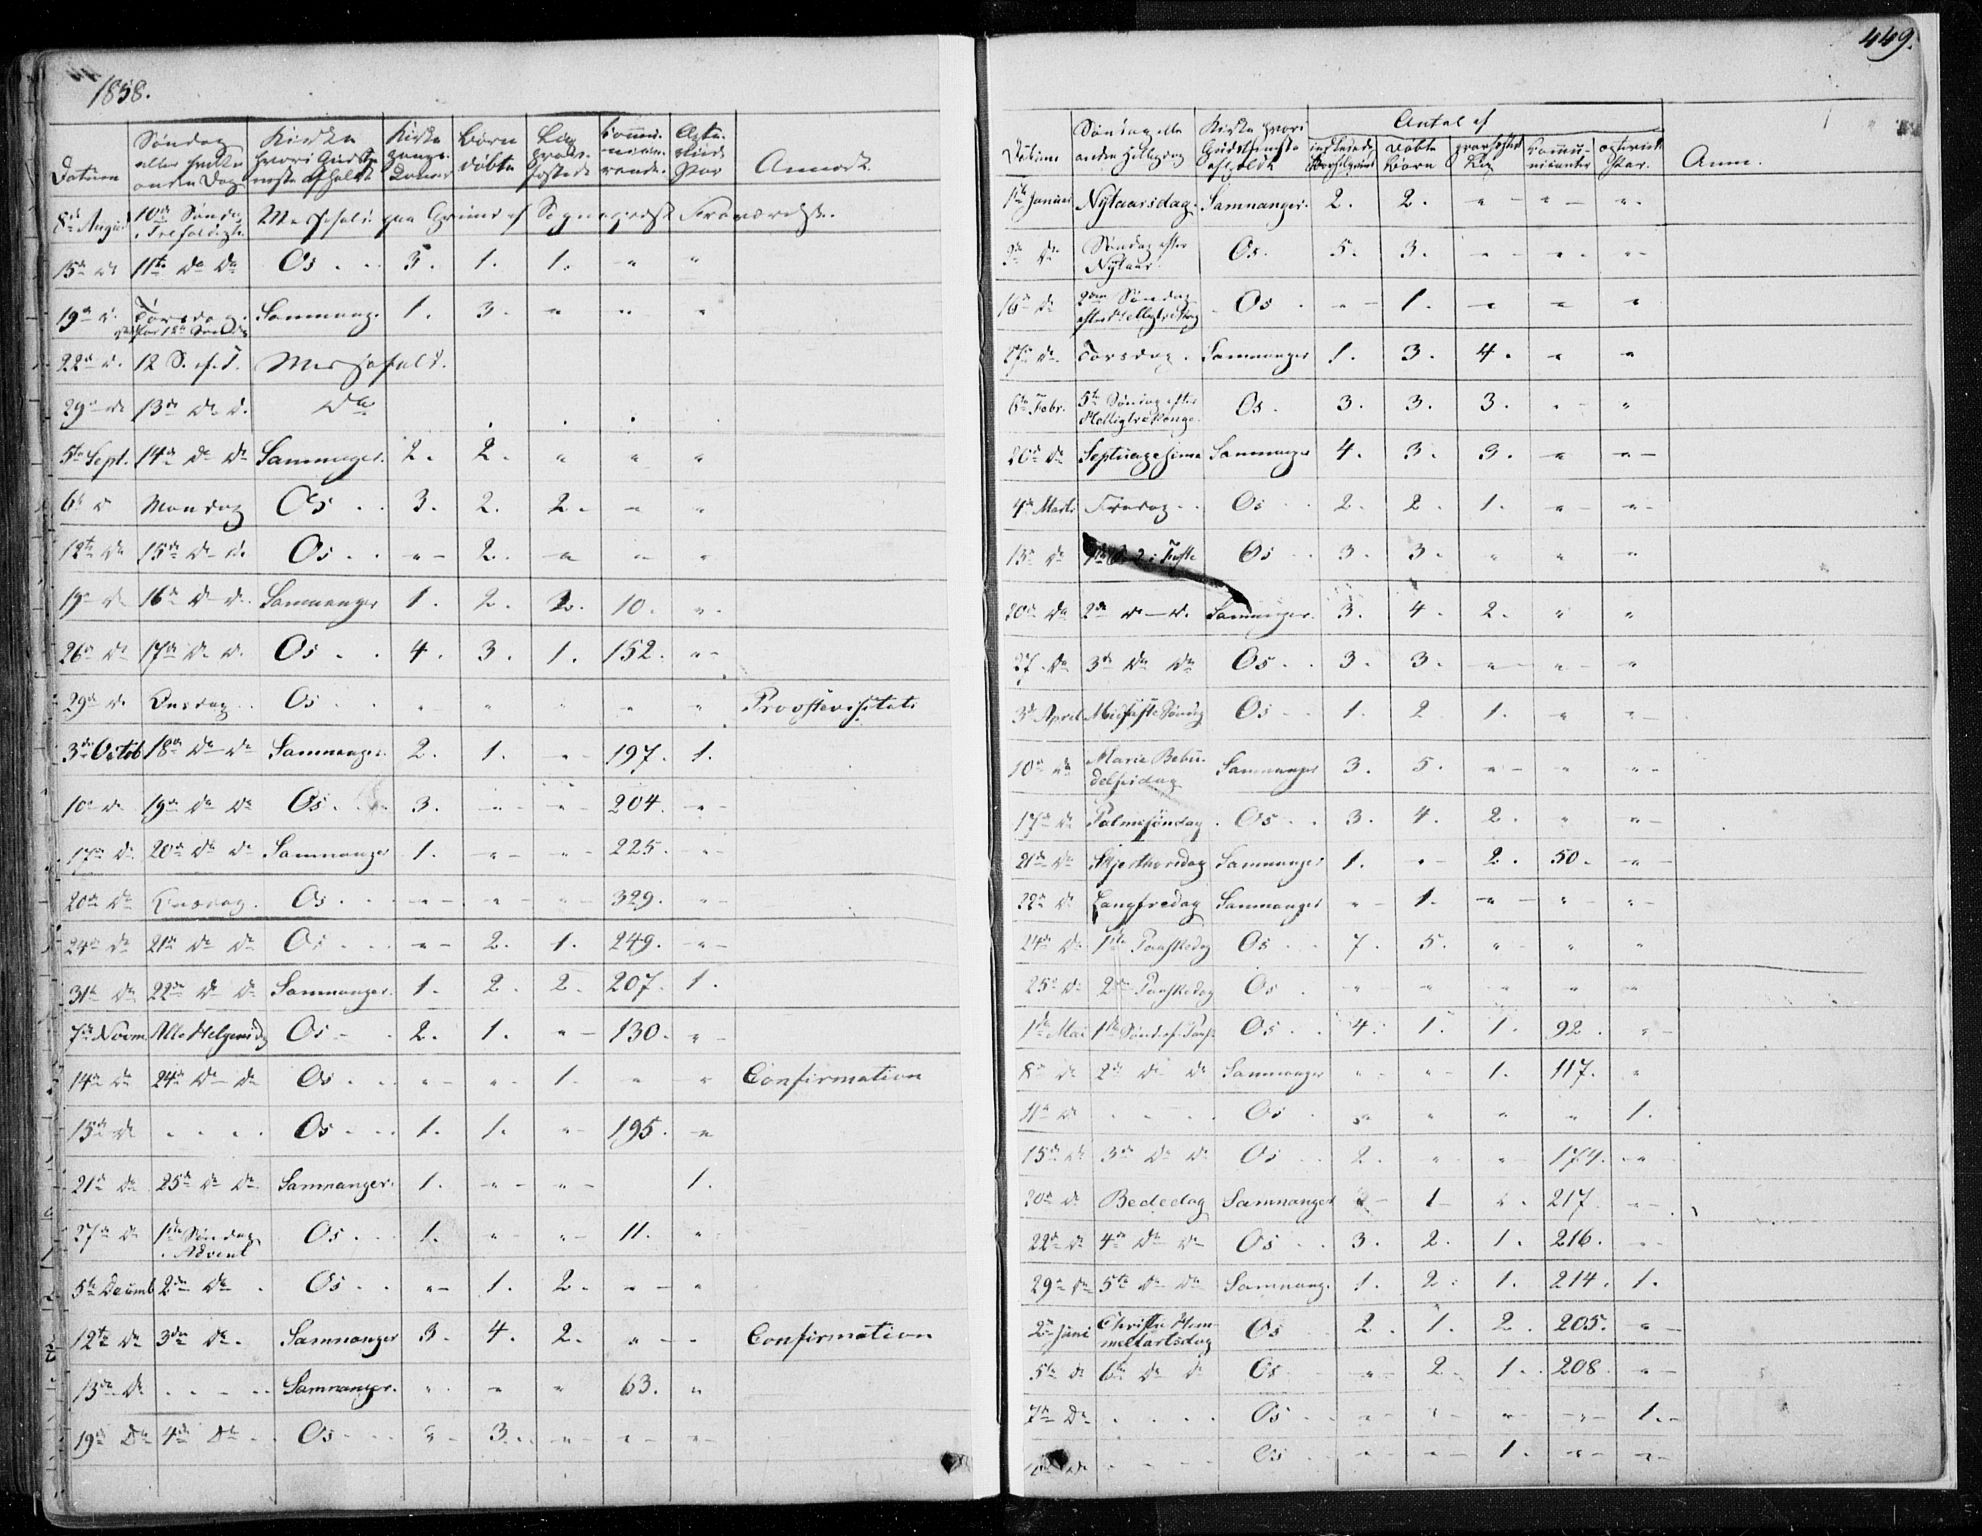 449.
1858.
Datum Søndag eller anden Dag Kirke hvori holdt Kirke Børn døbte Anmerk.
8de August 10de Søndag e. Trefoldigh. Messefald paa Grund af Sognepræst Fraværelse.
15de do 11te do do Os . . 3. 1. 1. " "
19de d. Torsdag Samnang. 1. 3. " " "
22de d. 12 S. ef. T. Messefald.
29de do 13de do d. do
5te Sept. 14de do do Samnanger. 2. 2. " " "
6te d Mandag Os . . 3. 2. 2. " "
12te do 15de do d. Os . . " 2. " " "
19de do 16de do do. Samnanger 1. 2. 2. 10. "
26de do 17de do do. Os . . 4. 3. 1. 152. "
29de do Onsdag . Os . . " " " " " Provstevisitats
3die Octob 18de do do Samnanger. 2. 1. " 197. 1.
10de do 19de do do Os . 3. " " 204. "
17de do. 20de do do Samnanger 1. " " 225. "
20de do Onsdag. Os . . " " " 329. "
24de do 21de do do Os . . " 2. 1. 249. "
31te do 22de do do Samnanger. 1. 2. 2. 207. 1.
7de Novm Alle Helgensdg Os . . 2. 1. " 130. "
14de do 24de do do Os . . " " 1. " " Confirmation
15de do . . . . Os . . 1. 1. " 195. "
21de do 25de do do Samnanger. 1. " " 1.
27de do 1ste Søndag i Advent Os . . 1. " " 11. "
5te Decemb 2den do . Os . . " 1. 2. " "
12te do 3die do. Samnanger 3. 4. 2. " " Confirmation
13de do . . . . Samnanger. " " " 63. "
19de do 4de do . . Os . . 3. " " "
Datum Søndag eller anden Helligdag Kirke hvori Gudstjeneste afholdt Antal af døbte Børn Communicanter Anm.
1ste Januar Nytaarsdag. Samnanger. 2. 2. " " "
9de do Søndag efter Nytaar. Os. 5. 3. " " "
16de do 2den Søndag efter Helligtrekong Os " 1. " " "
do Torsdag. Samnanger 1. 3. 4. " "
6te Febr. 5te Søndag efter Helligtrekonge. Os. 3. 3. 3. " "
20de do Septuagesima Samnanger 4. 3. 3. " "
4de Marts Fredag . . Os . . 2. 2. 1. " "
13de do i Faste Os . . 3. 3. " " "
20de do 2den do do. Samnanger. 3. 4. 2. " "
27. do 3die do do Os . . 3. 3. " " "
3die April Midfaste Søndag Os . 1. 2. 1. " "
10de do Marie Bebudelsesdag Samnanger 3. 5. " " "
17de do Palmesøndag . Os . . 3. 4. 2. " "
21de do Skjærthorsdag Samnanger 1. " 2. 50. "
22de do Langfredag Samnanger " 1. " " "
24de do 1ste Paaskedag Os . . 7. 5. " " "
25de do 2den Paaskedag Os . " " " " "
1ste Mai 1ste Sønd. ef. Paas. Os . . 4. 1. 1. 92. "
8de do 2den do do Samnanger " " 1. 117. "
11te do . . . . Os . " " " " 1.
15de do 3die do do Os . 2. " " 174. "
20de do Bededag Samnanger " 1 " 217. "
22de do 4de do do Os . . 3. 2. 1. 216. "
29de do 5te do do Samnang. 1. 2. 1. 214. 1.
2den Juni Christi Himmelfartsdag Os . . 2. 1. 2. 205. "
5te do 6te do do Os . " 2. 1. 208. "
7de do . . . . Os . . " " " " 1.
do . . . . Os . . " " 1. " "